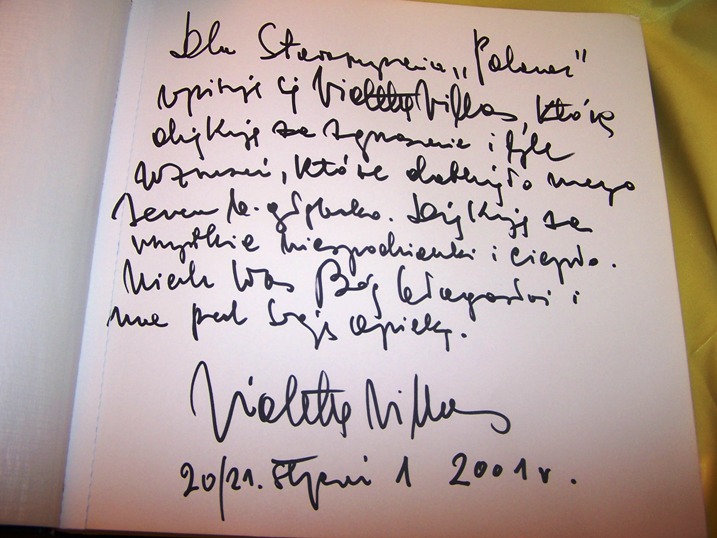 Dla Stowarzyszenia „Polonez"
wpisuje się Violetta Villas, która
dziękuję za zaproszenie i tyle
wzruszeń, które dotknęło mego
serca b. głęboko. Dziękuję za
wszystkie niespodzianki i ciepło.
Niech Was Bóg błogosławi i
ma pod swoją opieką.
Violetta Villas
20/21. Styczeń 1 2001 r.